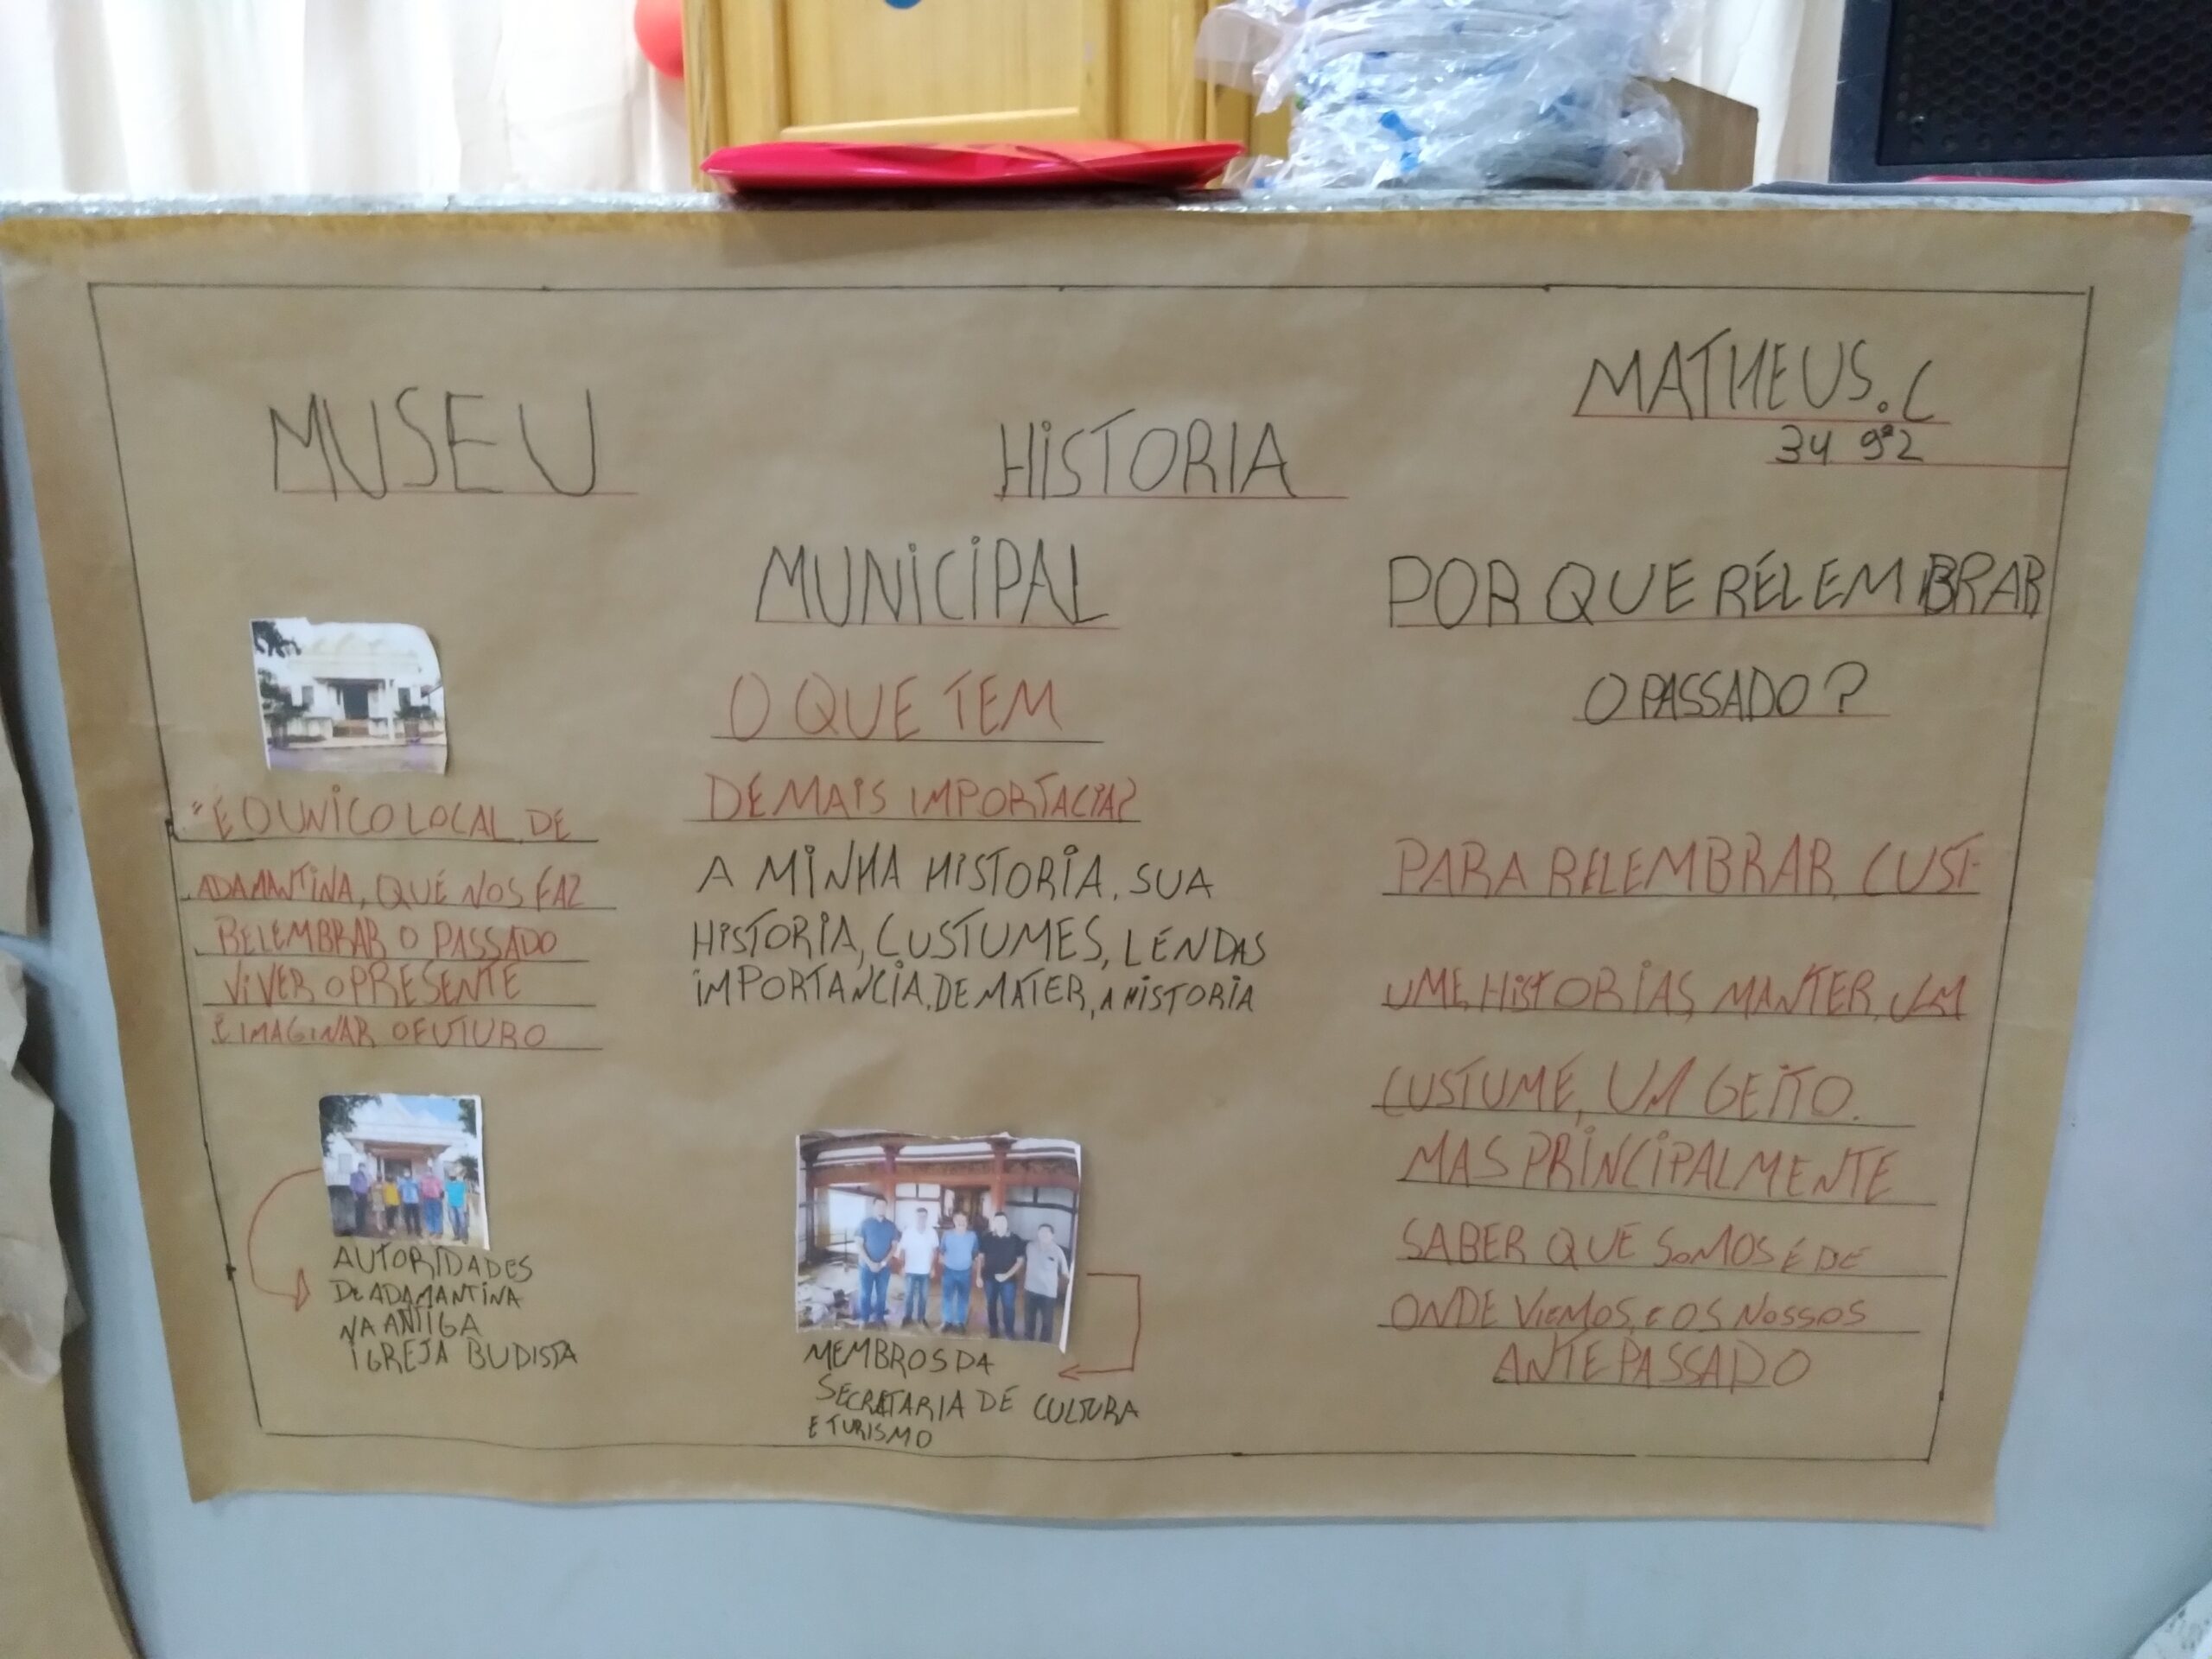 MUSEU
HISTORIA
MATHEUS. C
34 9º2
MUNICIPAL
"É O UNICO LOCAL DE
ADAMANTINA, QUE NOS FAZ
RELEMBRAR O PASSADO
VIVER O PRESENTE
E IMAGINAR O FUTURO
AUTORIDADES
DE ADAMANTINA
NA ANTIGA
IGREJA BUDISTA
O QUE TEM
DE MAIS IMPORTACIA?
A MINHA HISTORIA, SUA
HISTORIA, CUSTUMES, LENDAS
IMPORTANCIA, DE MATER, A HISTORIA
MEMBROS DA
SECRATARIA DE CULTURA
E TURISMO
POR QUE RELEMBRAR
O PASSADO?
PARA RELEMBRAR, CUST-
UME, HISTORIAS, MANTER, UM
CUSTUME, UM GEITO.
MAS PRINCIPALMENTE
SABER QUE SOMOS É DE
ONDE VIEMOS, E OS NOSSOS
ANTEPASSADO